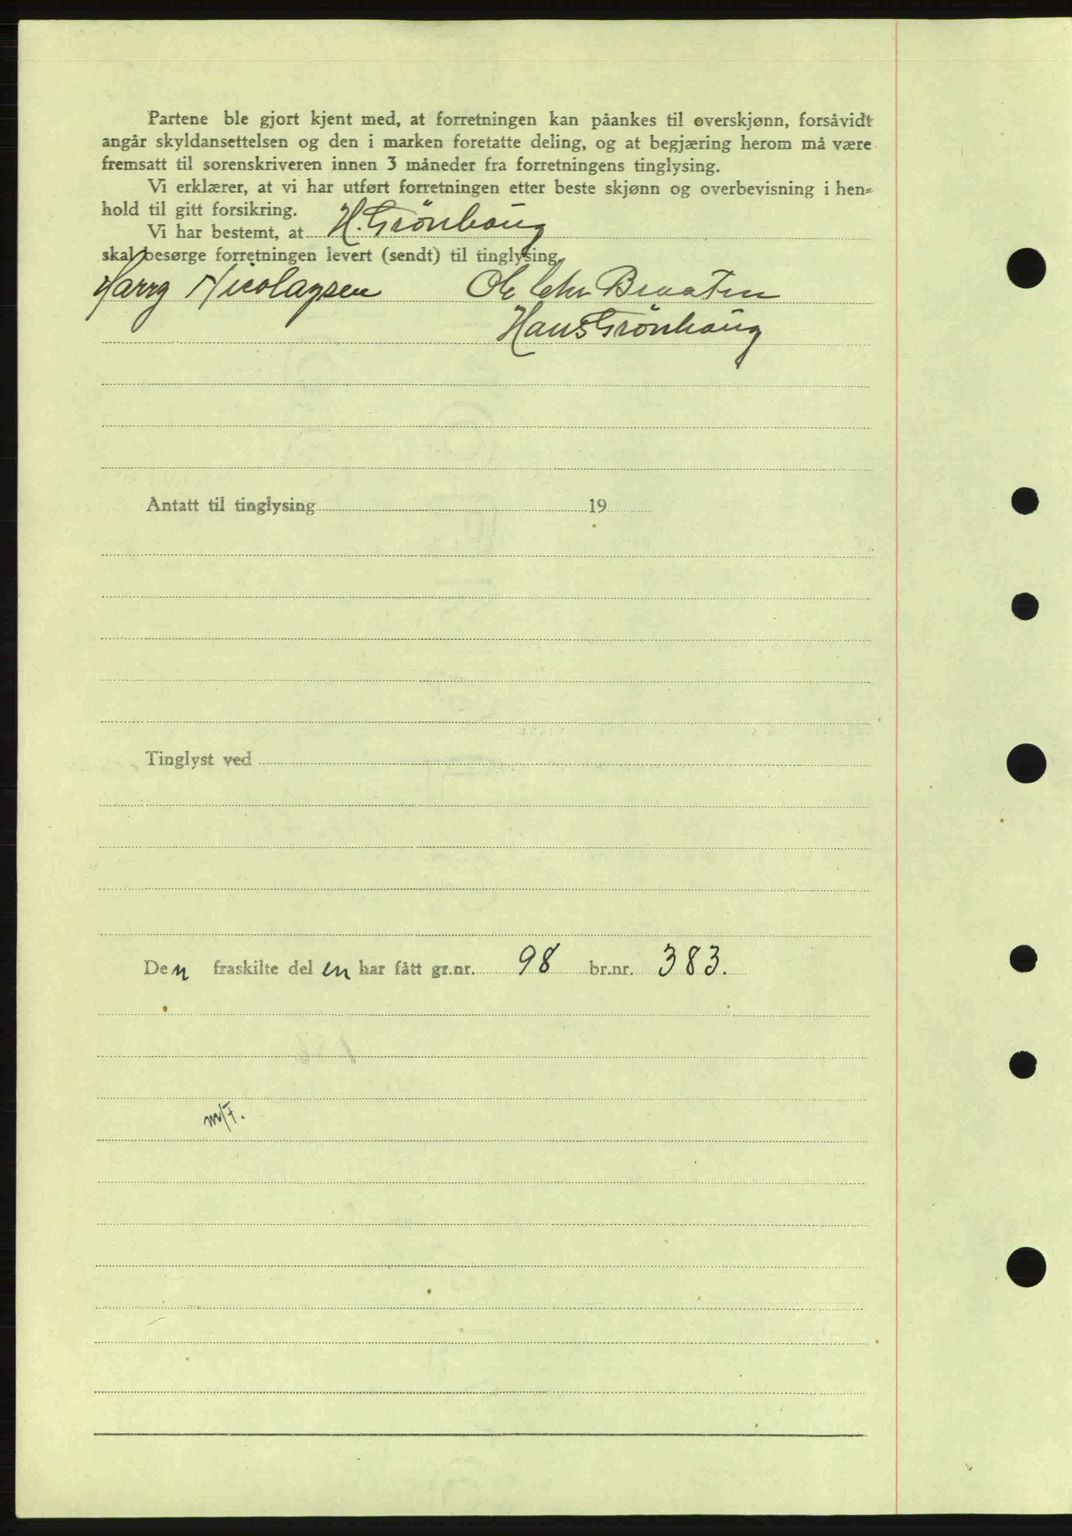 Partene ble gjort kjent med, at forretningen kan påankes til overskjønn, forsåvidt
angår skyldansettelsen og den i marken foretatte deling, og at begjæring herom må være
fremsatt til sorenskriveren innen 3 måneder fra forretningens tinglysing.
Vi erklærer, at vi har utført forretningen etter beste skjønn og overbevisning i hen-
hold til gitt forsikring.
Vi har bestemt, at H. Grönhaug
skal besørge forretningen levert (sendt) til tinglysing.
Harry Nicolaysen Ole Chr Braaten
Hans Grönhaug
Antatt til tinglysing 19
Tinglyst ved
Den fraskilte del en har fått gr.nr. 98 br.nr. 383.
m/F.